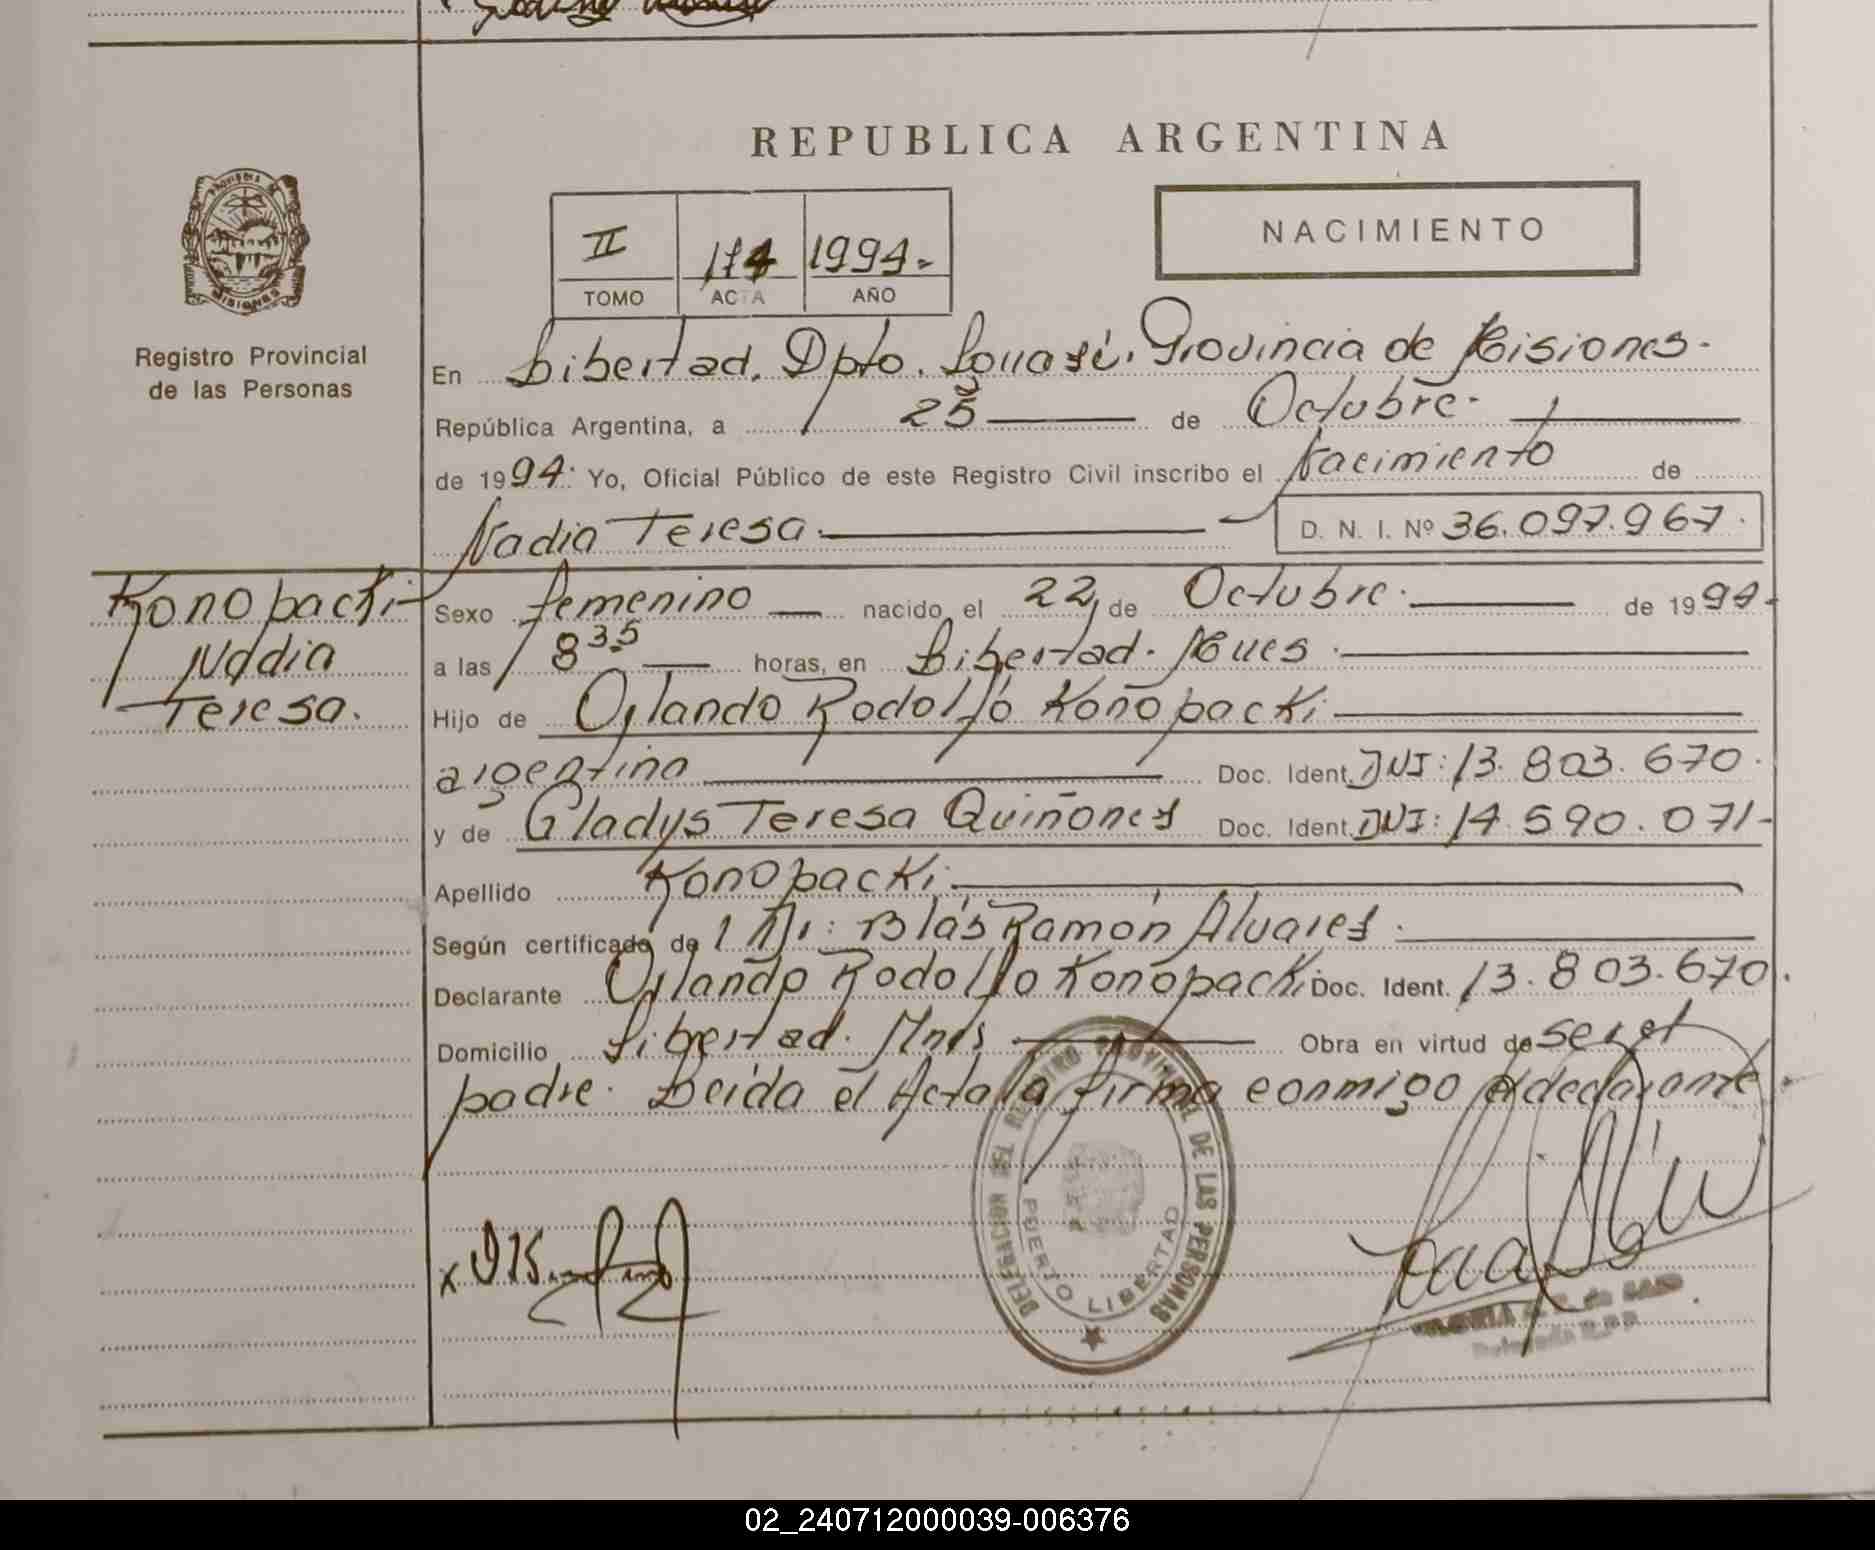 REPUBLICA ARGENTINA
NACIMIENTO
II 174 1994.-
TOMO ACTA AÑO
PROVINCIA DE MISIONES
Registro Provincial
de las Personas
En Libertad. Dpto. Iguazú. Provincia de Misiones.
República Argentina, a 25 de Octubre.
de 1994. Yo, Oficial Público de este Registro Civil inscribo el Nacimiento de
Nadia Teresa. D. N. I. Nº 36.097.967.
Konopacki
Nadia
Teresa.
Sexo femenino nacido el 22, de Octubre. de 1994.
a las 8 35 horas, en Libertad. Mnes.
Hijo de Orlando Rodolfo Konopacki
argentino Doc. Ident. DNI: 13.803.670.
y de Gladys Teresa Quiñones Doc. Ident. DNI: 14.590.071-
Apellido Konopacki
Según certificado de Dr: Blás Ramón Alvares.
Declarante Orlando Rodolfo Konopacki Doc. Ident. 13.803.670.
Domicilio Libertad. Mnes Obra en virtud de ser el
padre. Leída el Acta la firma conmigo el declarante.
DELEGACION DEL REGISTRO PROVINCIAL DE LAS PERSONAS
PUERTO LIBERTAD
02_240712000039-006376